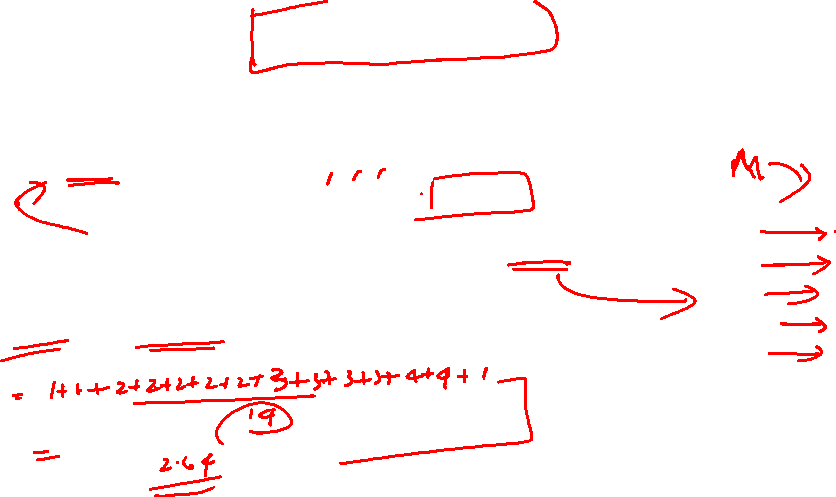 = 1+1+2+2+2+2+2+3+3+3+3+4+4+1
19
=
2.64